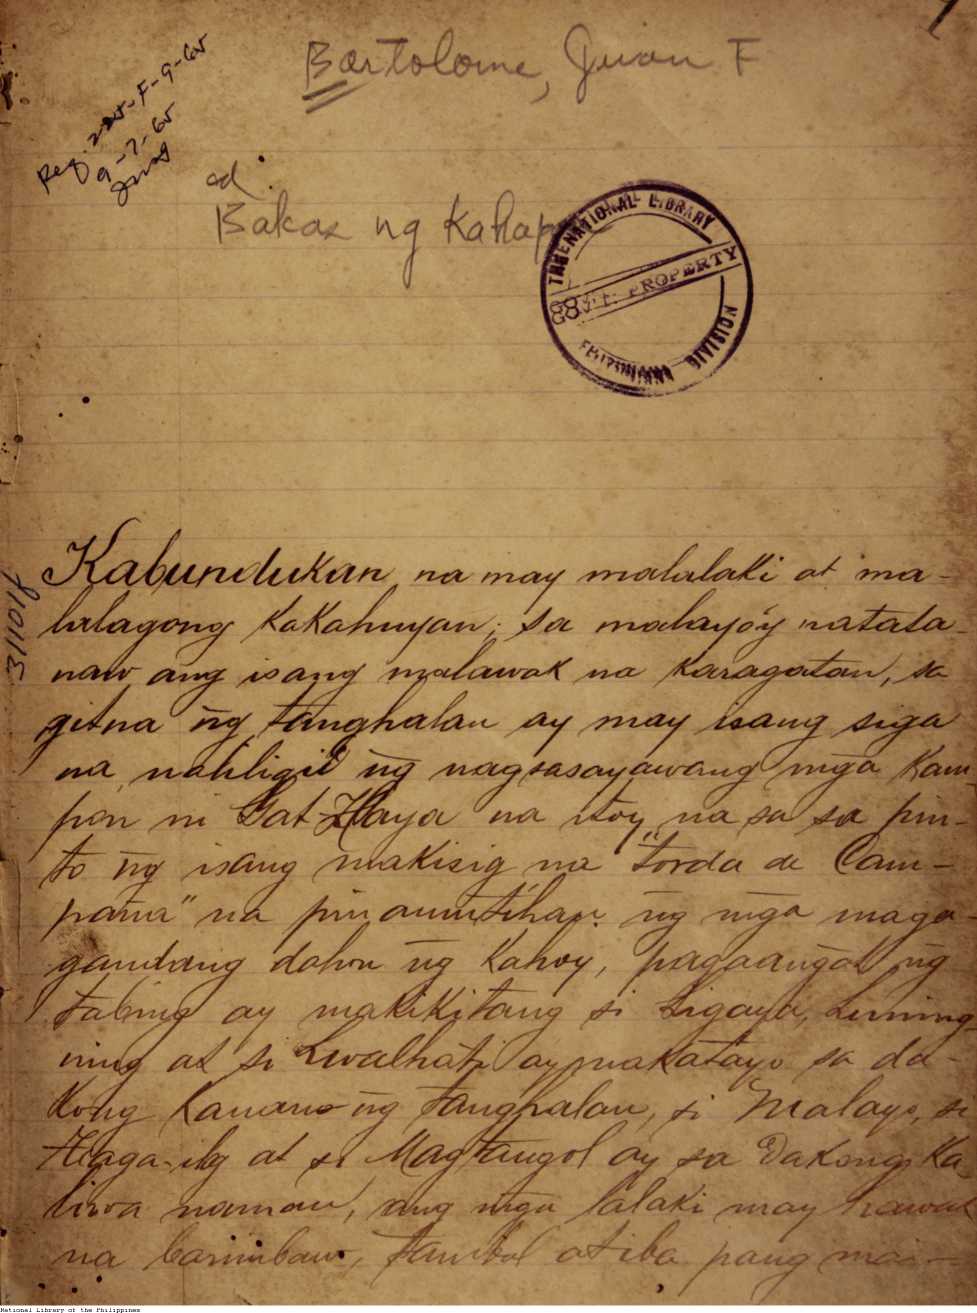 Bartolome, Juan F
Reg. F-9-65
9-7-65
ed.
Bakas ng Kahapon
THE NATIONAL LIBRARY
GOV'T. PROPERTY
FILIPINIANA DIVISION
31101f
Kabundukan na may malalaki at ma-
lalagong kakahuyan; sa malayo'y natata-
naw ang isang malawak na karagatan, sa
gitna ng tanghalan ay may isang siga
na naliligid ng nagsasayawang mga kam-
pon ni Gat-Haya na ito'y na sa sa pin-
to ng isang makisig na "torda de Cam-
paña" na pinamutihan ng mga maga-
gandang dahon ng kahoy, pagaangat ng
tabing ay makikitang si Ligaya, Luning
ning at si Lwalhati ay nakatayo sa da-
kong kanan ng tanghalan, si Malayo, si
Taga-ilog at si Magtangol ay sa dakong ka
liwa naman, ang mga lalaki may hawak
na bambaw, tambol at iba pang mai-